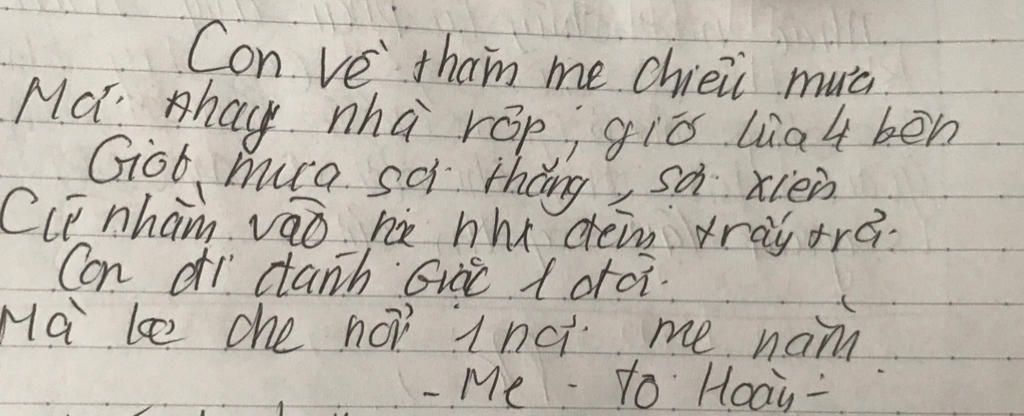 Con về thăm mẹ chiều mưa
Mới hay nhà rộp, gió lùa 4 bên
Giọt mưa sợi thẳng, sợi xiên
Cứ nhằm vào mẹ như đêm trắng
Con đi đánh Giặc 1 đời
Mà che nổi 1 nơi mẹ nằm
- Mẹ - Tô Hoàn -